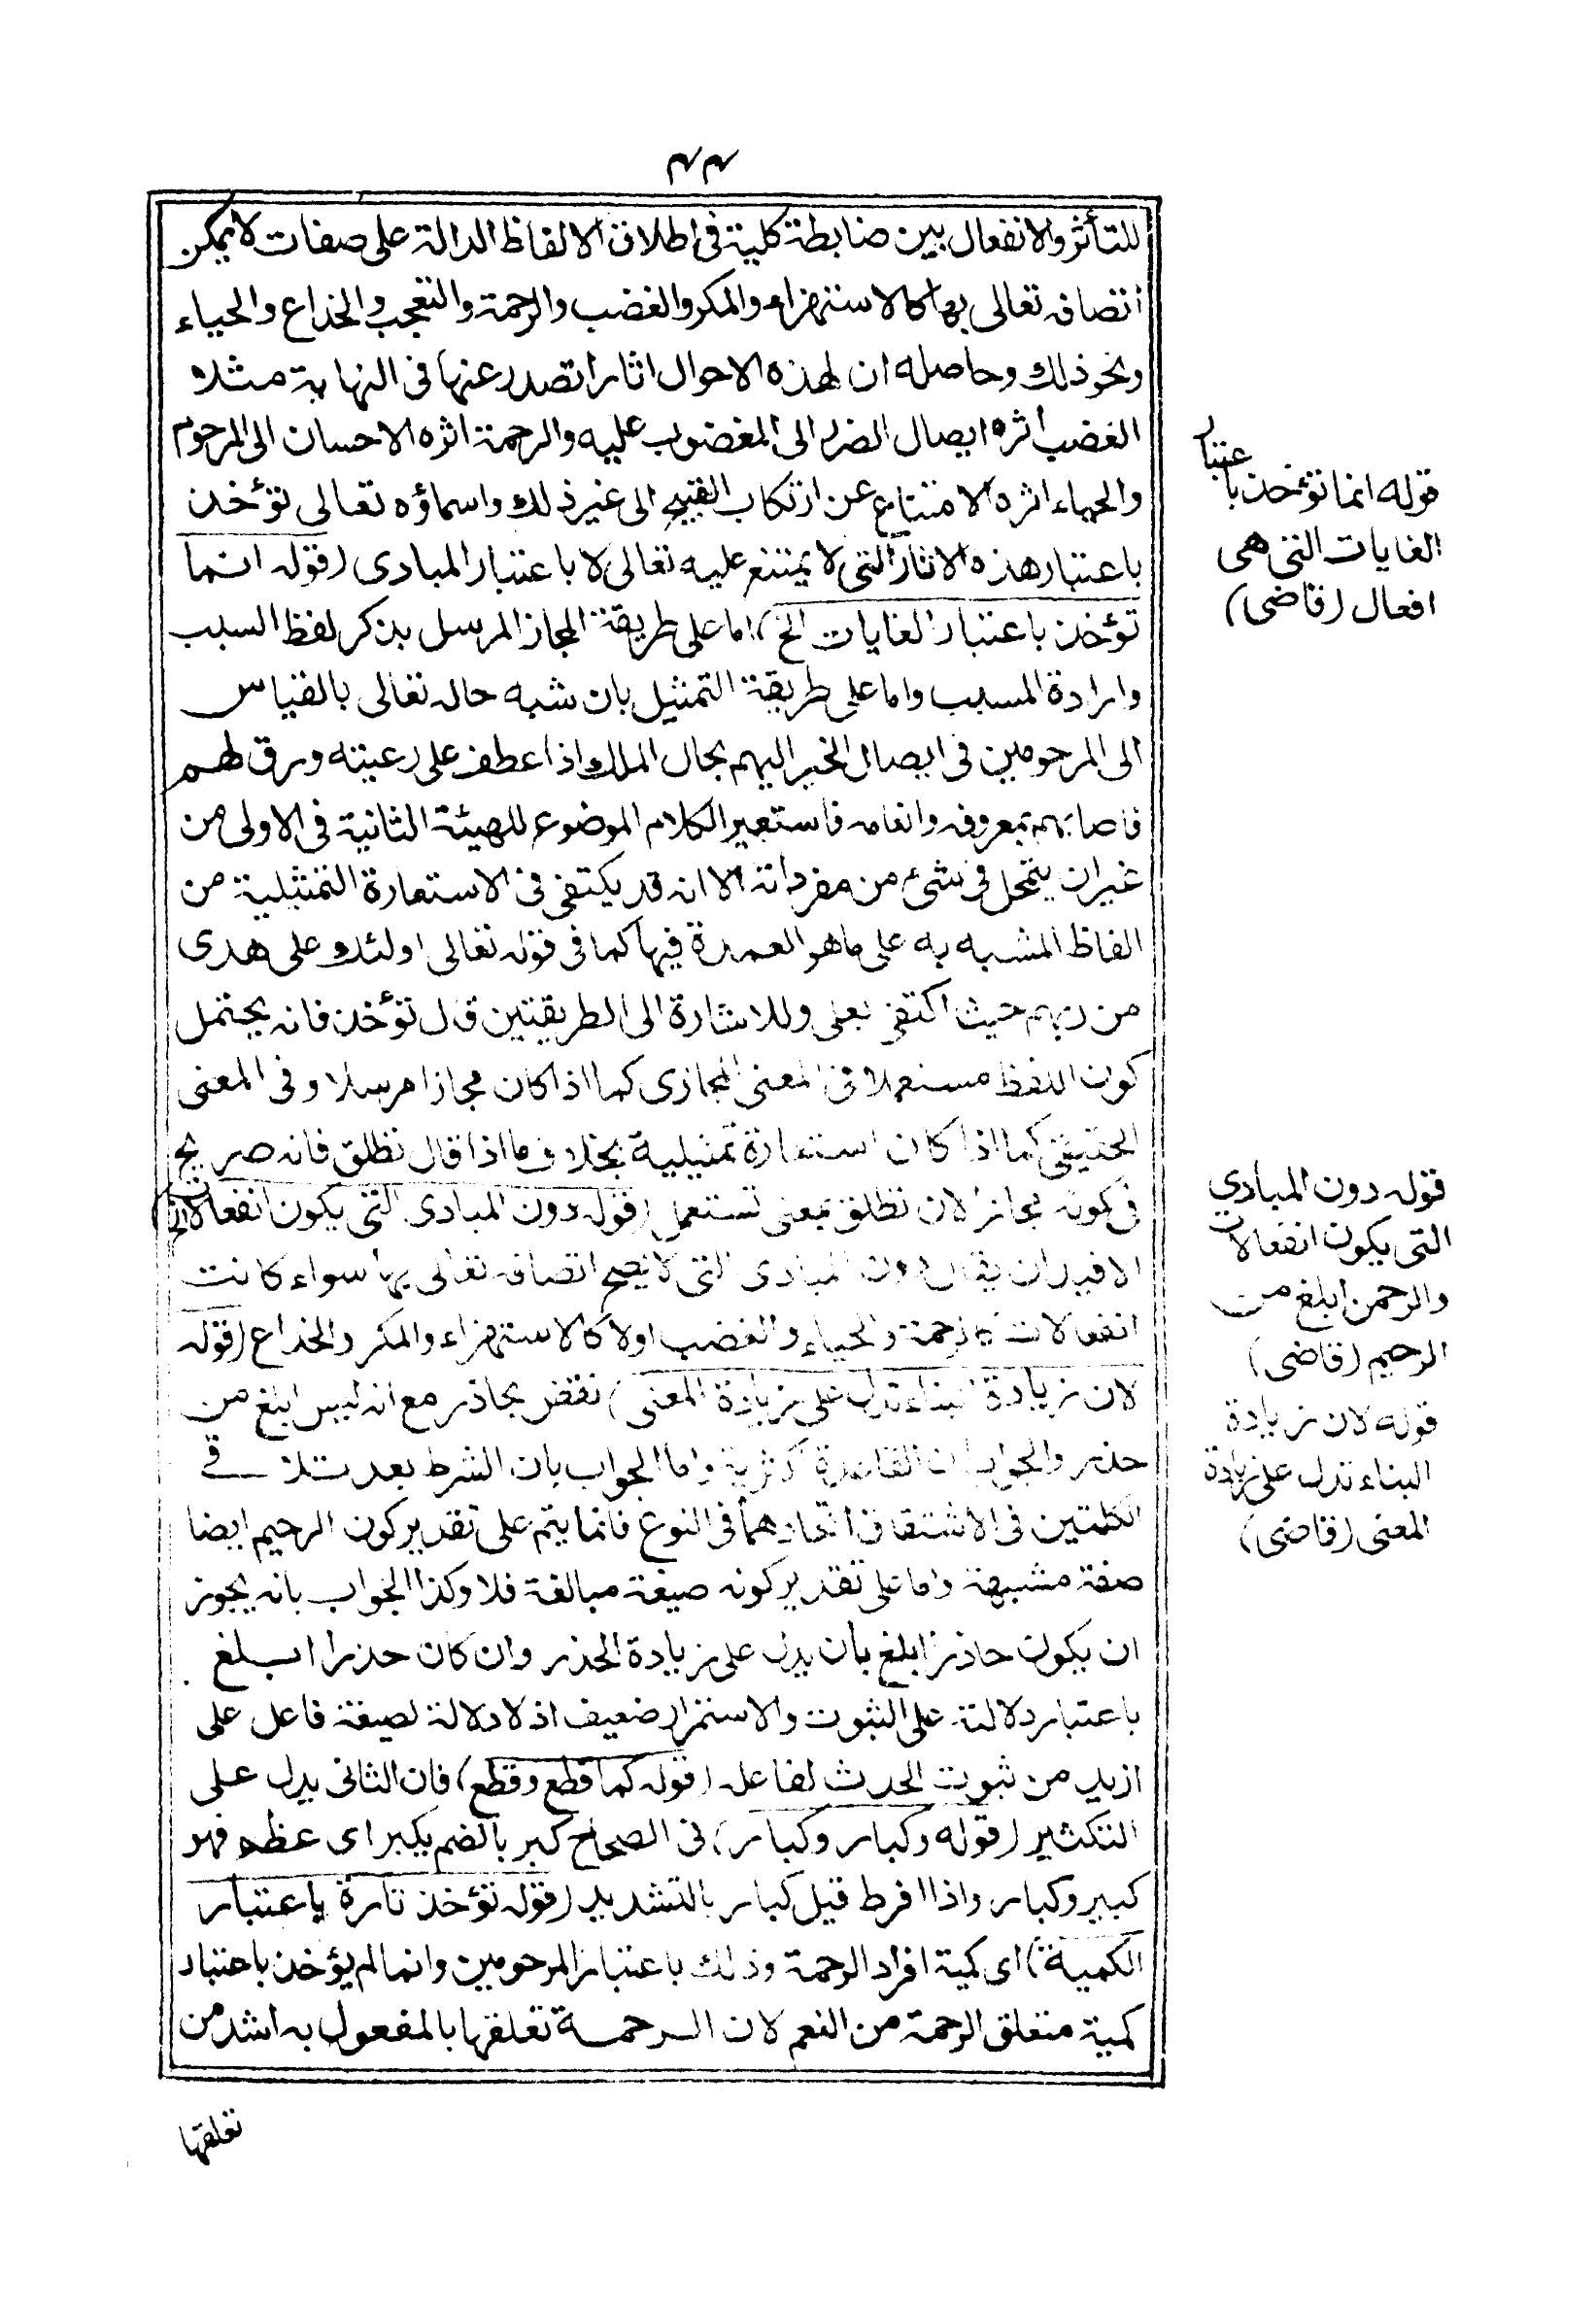 ٤٤
للتأثر والانفعال بين ضابطة كلية فى اطلاق الالفاظ الدالة على صفات لا يمكن
اتصافه تعالى بها كالاستهزاء والمكر والغضب والرحمة والتعجب والخداع والحياء
ونحو ذلك وحاصله ان لهذه الاحوال اثارا تصدر عنها فى النهاية مثلا
الغضب أثره ايصال الضرر الى المغضوب عليه والرحمة اثره الاحسان الى المرحوم
والحياء اثره الامتناع عن ارتكاب القبيح الى غير ذلك واسماؤه تعالى تؤخذ
باعتبار هذه الاثار التى لا يمتنع عليه تعالى لا باعتبار المبادى (قوله انما
تؤخذ باعتبار الغايات الخ) اما على طريقة المجاز المرسل بذكر لفظ السبب
وارادة المسبب واما على طريقة التمثيل بان شبه حاله تعالى بالقياس
الى المرحومين فى ايصال الخير اليهم بحال الملك اذا عطف على رعيته ورق لهم
فاصابهم بمعروفه وانعامه فاستعير الكلام الموضوع للهيئة الثانية فى الاولى من
غير ان يتمحل فى شىء من مفرداته الا انه قد يكتفى فى الاستعارة التمثيلية من
الفاظ المشبه به على ما هو العمدة فيها كما فى قوله تعالى اولئك على هدى
من ربهم حيث اكتفى بعلى وللاشارة الى الطريقتين قال تؤخذ فانه يحتمل
كون اللفظ مستعملا فى المعنى المجازى كما اذا كان مجازا مرسلا وفى المعنى
الحقيقى كما اذا كان استعارة تمثيلية بخلاف ما اذا قال تطلق فانه صريح
فى كونه مجازا لان تطلق بمعنى تستعمل (قوله دون المبادى التى يكون انفعالات الخ)
الافيد ان يقال دون المبادى التى لا يصح اتصافه تعالى بها سواء كانت
انفعالات كالرحمة والحياء والغضب اولا كالاستهزاء والمكر والخداع (قوله
لان زيادة البناء تدل على زيادة المعنى) نقض بحاذر مع انه ليس ابلغ من
حذر والجواب ان القاعدة اكثرية واما الجواب بان الشرط بعد تلاقى
الكلمتين فى الاشتقاق اتحادهما فى النوع فانما يتم على تقدير كون الرحيم ايضا
صفة مشبهة واما على تقدير كونه صيغة مبالغة فلا وكذا الجواب بانه يجوز
ان يكون حاذرا ابلغ بان يدل على زيادة الحذر وان كان حذرا ابلغ
باعتبار دلالته على الثبوت والاستمرار ضعيف اذ لا دلالة لصيغة فاعل على
ازيد من ثبوت الحدث لفاعله (قوله كما قطع وقطع) فان الثانى يدل على
التكثير (قوله وكبار وكبار) فى الصحاح كبر بالضم يكبر اى عظم فهو
كبير وكبار واذا افرط قيل كبار بالتشديد (قوله تؤخذ تارة باعتبار
الكمية) اى كمية افراد الرحمة وذلك باعتبار المرحومين وانما لم يؤخذ باعتبار
كمية متعلق الرحمة من النعم لان الرحمة تعلقها بالمفعول به اشد من
تعلقها
قوله انما تؤخذ باعتبار
الغايات التى هى
افعال (قاضى)
قوله دون المبادي
التى يكون انفعالات
والرحمن ابلغ من
الرحيم (قاضى)
قوله لان زيادة
البناء تدل على زيادة
المعنى (قاضى)